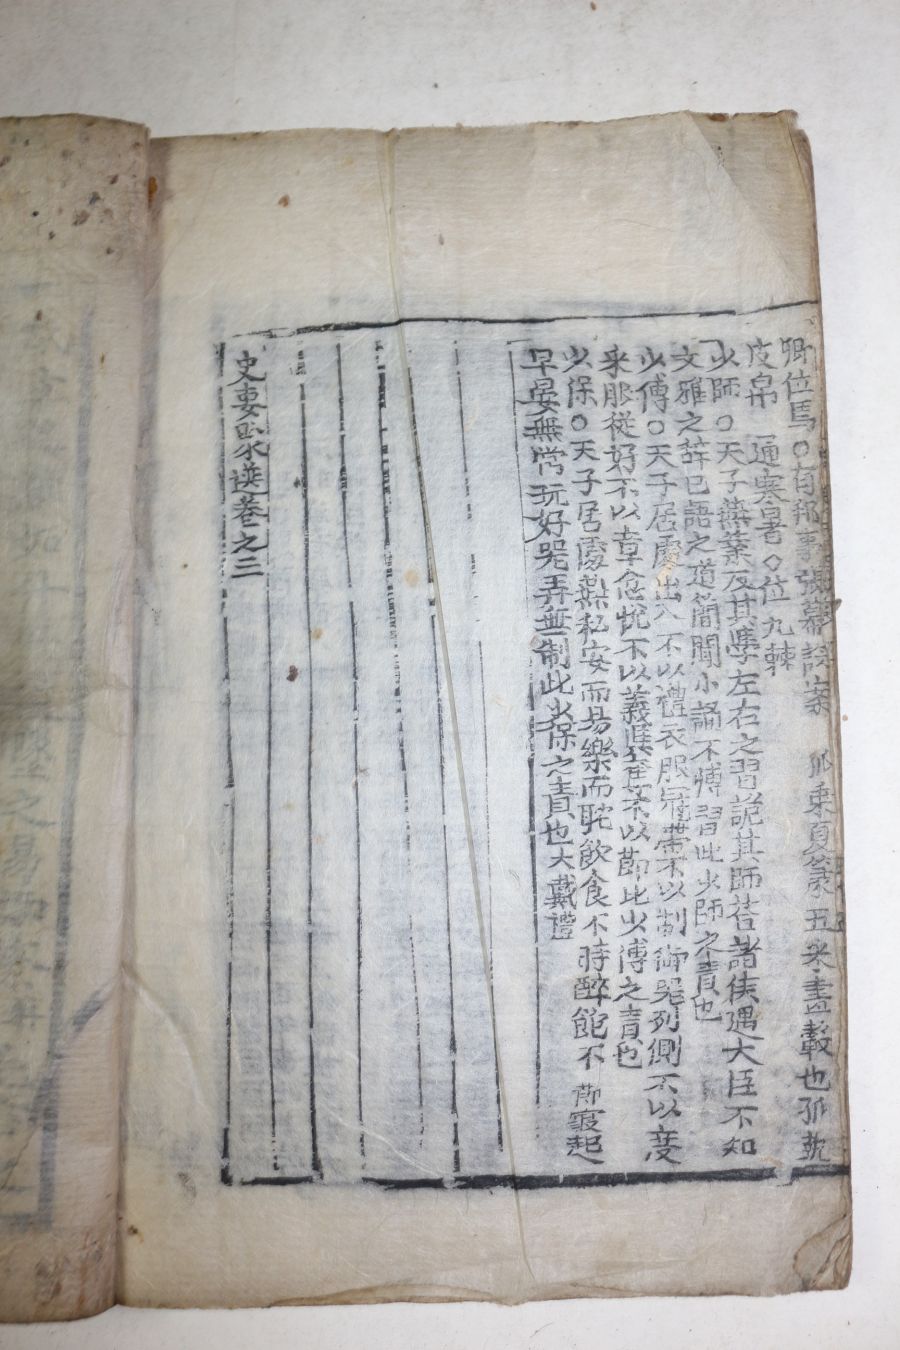 卿位焉○有邦事張幕設案　孤乘夏篆五采畫轂也孤執
皮帛　通寒暑○位九棘
少師○天子燕業反其學左右之習詭其師荅諸侯遇大臣不知
文雅之辞已語之道簡聞小誦不博習此少師之責也
少傅○天子居處出入不以禮衣服冠帶不以制御器列側不以度
采服從好不以章忿悅不以義與奪不以節此少傅之責也
少保○天子居處燕私安而易樂而耽飲食不時醉飽不節寢起
早晏無常玩好器弄無制此少保之責也大戴禮
史要聚選卷之三